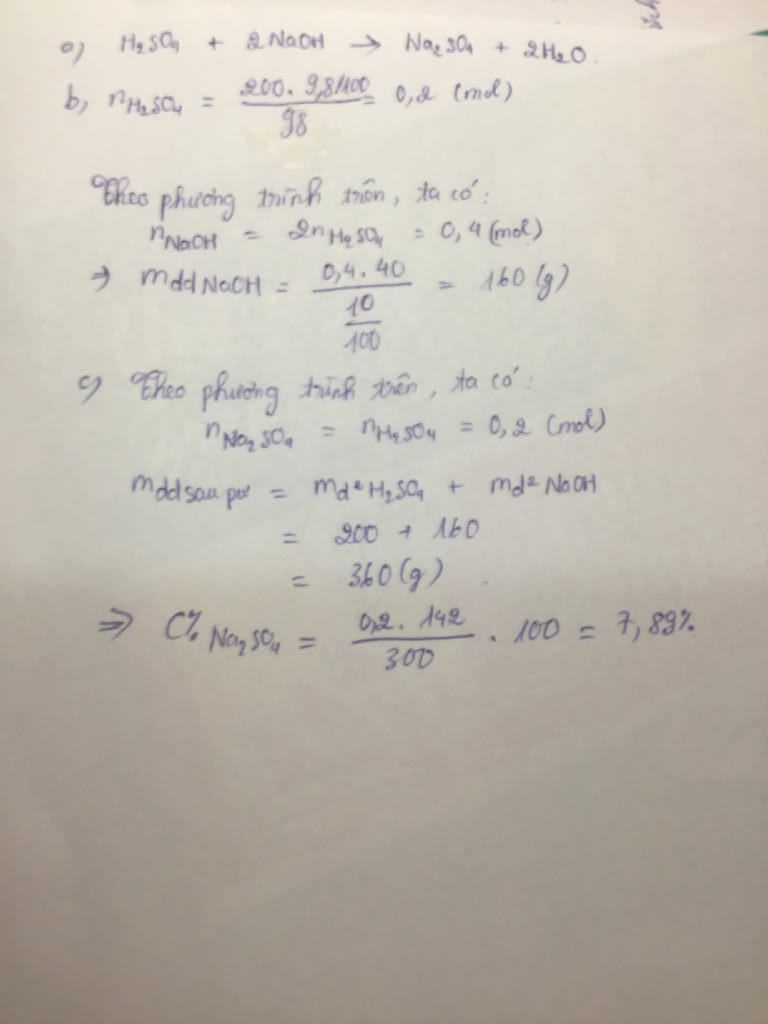 a) H₂SO₄ + 2NaOH → Na₂SO₄ + 2H₂O.
b, nH₂SO₄ = 200. 9,8/100 / 98 = 0,2 (mol)
Theo phương trình trên, ta có:
nNaOH = 2nH₂SO₄ = 0,4 (mol)
→ mdd NaOH = 0,4. 40 / 10/100 = 160 (g)
c) Theo phương trình trên, ta có:
nNa₂SO₄ = nH₂SO₄ = 0,2 (mol)
mdd sau pư = md² H₂SO₄ + md² NaOH
= 200 + 160
= 360 (g)
⇒ C% Na₂SO₄ = 0,2. 142 / 300 . 100 = 7,89%